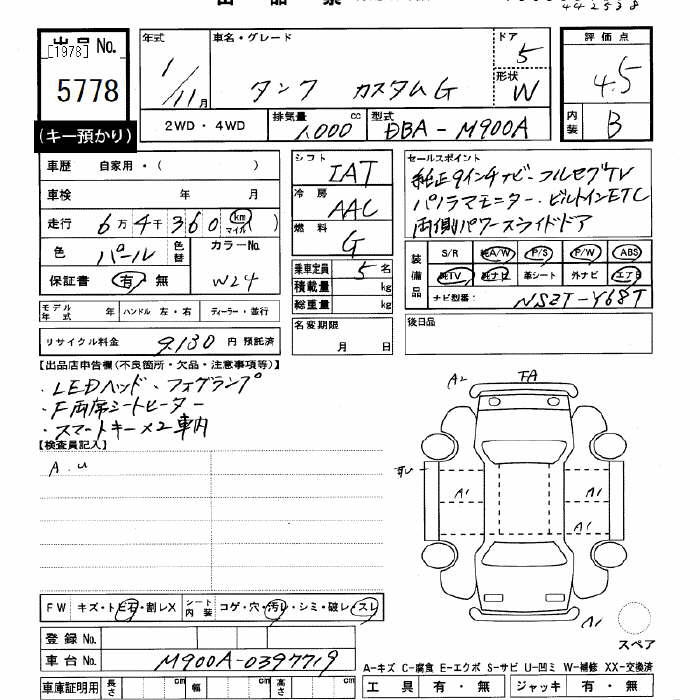 442538
出品 No.
[1978]
5778
(キー預かり)
年式
1/11月
車名・グレード
タンク カスタムG
ドア
5
形状
W
評価点
4.5
内装
B
2WD・4WD
排気量
1,000 cc
型式
DBA-M900A
車歴 自家用・( )
車検 年 月
走行 6万4千360 km マイル ( )
色 パール 色替
カラーNo.
W24
保証書 有・無
シフト
IAT
冷房
AAC
燃料
G
乗車定員 5 名
積載量 kg
総重量 kg
セールスポイント
純正9インチナビ・フルセグTV
パノラマモニター・ビルトインETC
両側パワースライドドア
装備品
S/R 純A/W P/S P/W ABS
純TV 純ナビ 革シート 外ナビ エアB
ナビ型番: NSZT-Y68T
モデル年式 年 ハンドル 左・右 ディーラー・並行
リサイクル料金 9,130 円 預託済
名変期限
月 日
後日品
【出品店申告欄(不良箇所・欠品・注意事項等)】
・LEDヘッド・フォグランプ
・F両席シートヒーター
・スマートキー×2車内
【検査員記入】
A.u
A2 FA
A1 A1
A1
A1
スペア
FW キズ・トビ石・割レX シート内装 コゲ・穴・汚レ・シミ・破レ・スレ
登録 No.
車台 No. M900A-0397719
A-キズ C-腐食 E-エクボ S-サビ U-凹ミ W-補修 XX-交換済
車庫証明用 長さ cm 幅 cm 高さ cm
工具 有・無 ジャッキ 有・無